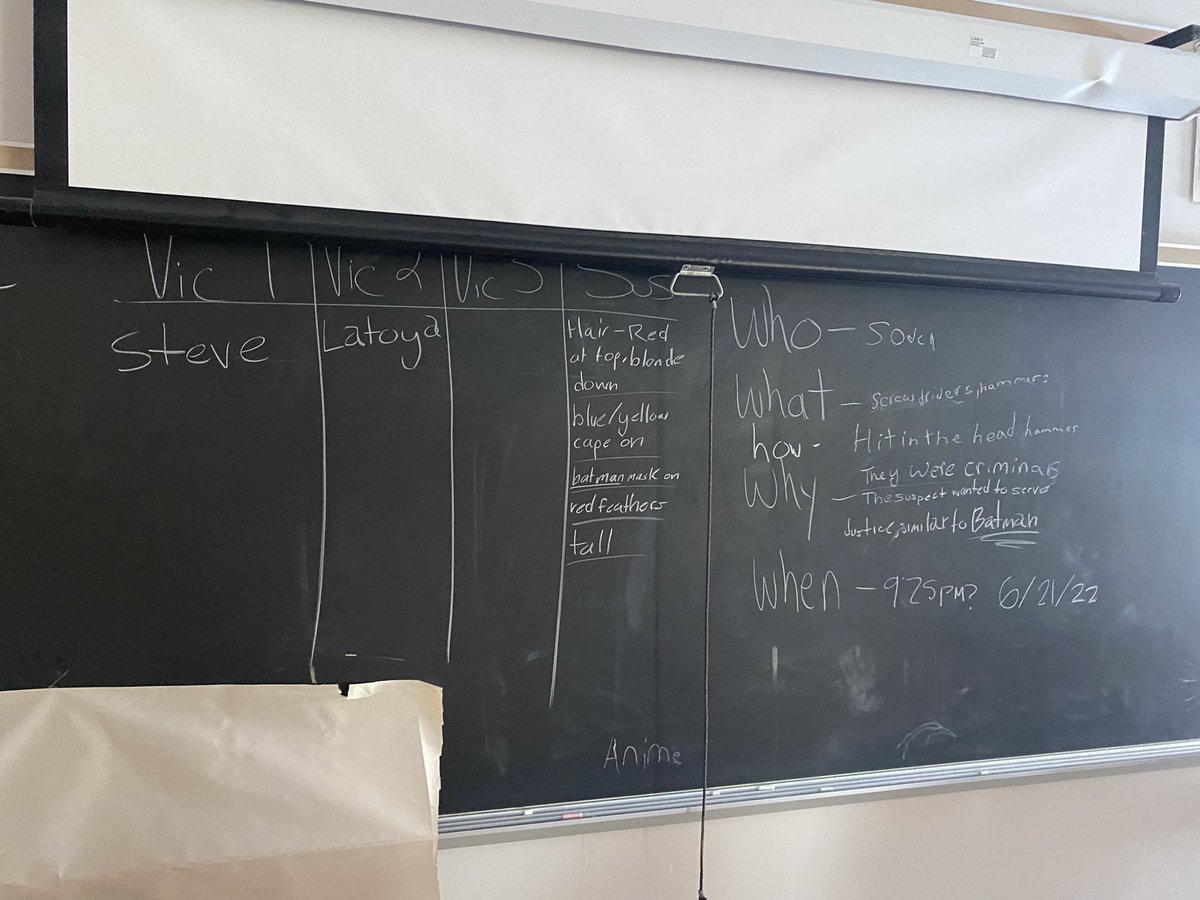 Vic 1
Vic 2
Vic 3
Sus
Steve
Latoya
Hair-Red
at top, blonde
down
blue/yellow
cape on
batman mask on
red feathers
tall
Who -
What - Screwdrivers, hammers
how - Hit in the head hammer
Why - They were criminals
- The suspect wanted to serve
Justice, similar to Batman
When - 9:25PM? 6/21/22
Anime